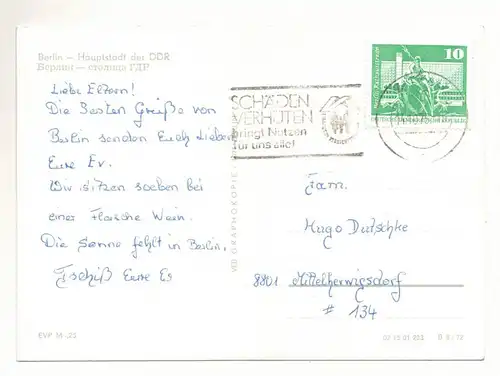 Berlin — Hauptstadt der DDR
Берлин — столица ГДР
Liebe Eltern!
Die Besten Grüße von
Berlin senden Euch Lieben
Eure Ev.
Wir sitzen soeben bei
einer Flasche Wein.
Die Sonne fehlt in Berlin.
Tschüß Eure Ev
EVP M -,20
SCHÄDEN
VERHÜTEN
bringt Nutzen
für uns alle!
10
VEB GRAPHOKOPIE
Fam.
Hugo Dutschke
8801 Mittelherwigsdorf
# 134